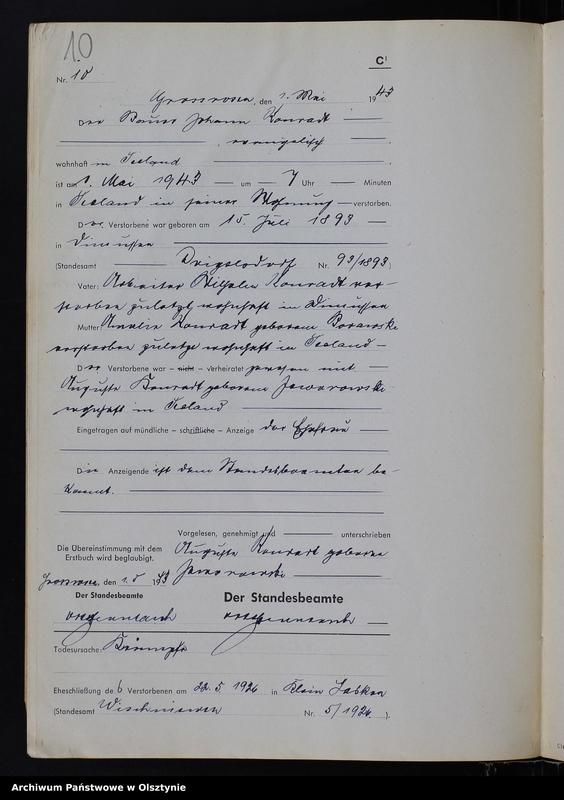 10
C¹
Nr. 10
Grossrosen, den 1. Mai 1943
Der Bauer Johann Konradt
, evangelisch ,
wohnhaft in Seeland ,
ist am 1. Mai 1943 um 7 Uhr Minuten
in Seeland in seiner Wohnung verstorben.
Der Verstorbene war geboren am 15. Juli 1893
in Dimussen
(Standesamt Drigelsdorf Nr. 93/1893)
Vater: Arbeiter Wilhelm Konradt ver-
storben zuletzt wohnhaft in Dimussen
Mutter: Amalie Konradt geborene
verstorben zuletzt wohnhaft in Seeland
Der Verstorbene war – nicht – verheiratet gewesen mit
Auguste Konradt geborene Jaworowski
wohnhaft in Seeland
Eingetragen auf mündliche – schriftliche – Anzeige der Ehefrau
Die Anzeigende ist dem Standesbeamten be-
kannt.
Vorgelesen, genehmigt und unterschrieben
Die Übereinstimmung mit dem
Erstbuch wird beglaubigt.
Auguste Konradt geborene
Jaworowski
Grossrosen, den 1. 5 1943
Der Standesbeamte
Der Standesbeamte
Todesursache: Krämpfe
Eheschließung des Verstorbenen am 22. 5. 1926 in Klein
(Standesamt Nr. 5/1926 ).
Archiwum Państwowe w Olsztynie